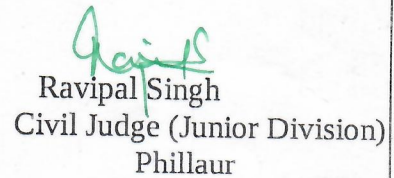 Ravipal Singh
Civil Judge (Junior Division)
Phillaur